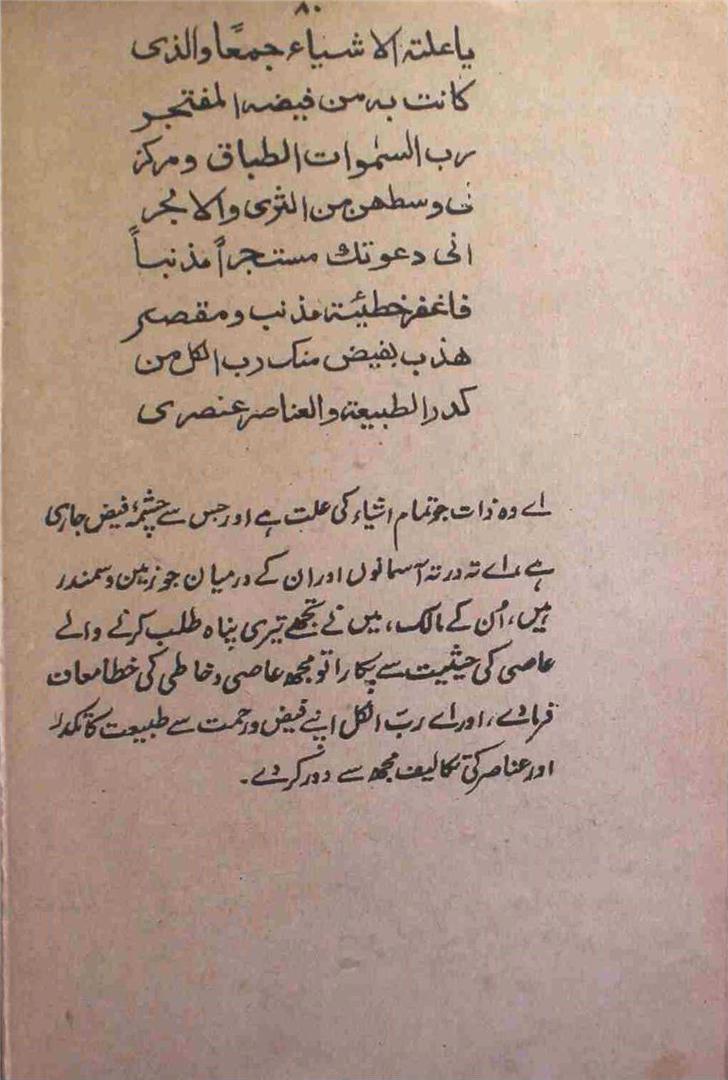 ۸۰
یا علتہ الاشیاء جمعًا والذی
کانت بہ من فیضہ المفتجر
رب السمٰوات الطباق ومرکز
فی وسطھن من الثری والابحر
انی دعوتک مستجراً مذنباً
فاغفر خطیئتہ مذنب ومقصر
ھذب بفیض منک رب الکل من
کدر الطبیعۃ والعناصر عنصری
اے وہ ذات جو تمام اشیاء کی علت ہے اور جس سے چشمۂ فیض جاری
ہے، اے تہ در تہ آسمانوں اور ان کے درمیان جو زمین و سمندر
ہیں، اُن کے مالک، میں نے تجھے تیری پناہ طلب کرنے والے
عاصی کی حیثیت سے پکارا تو مجھ عاصی و خاطی کی خطا معاف
فرما دے، اور اے ربّ الکل اپنے فیض و رحمت سے طبیعت کا تکدر
اور عناصر کی تکالیف مجھ سے دور کر دے۔